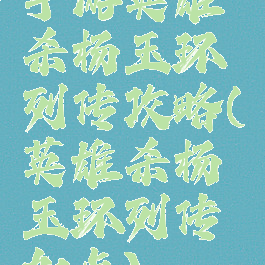 手游英雄
杀杨玉环
列传攻略(
英雄杀杨
玉环列传